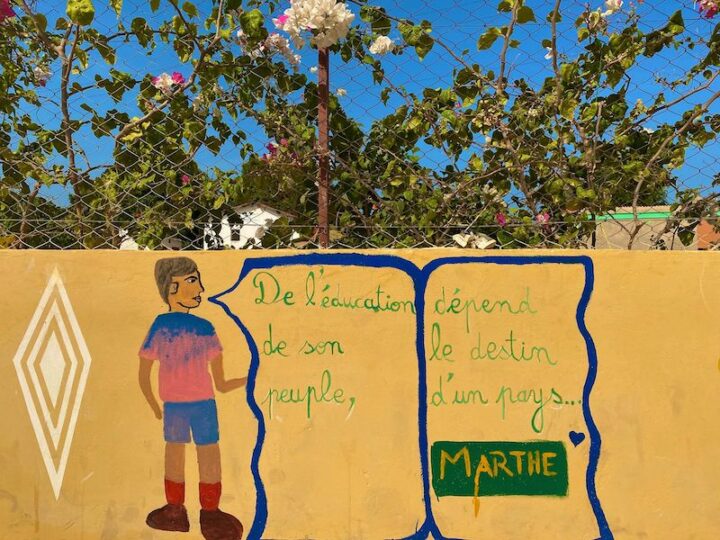 De l'éducation
de son
peuple,
dépend
le destin
d'un pays...
MARTHE